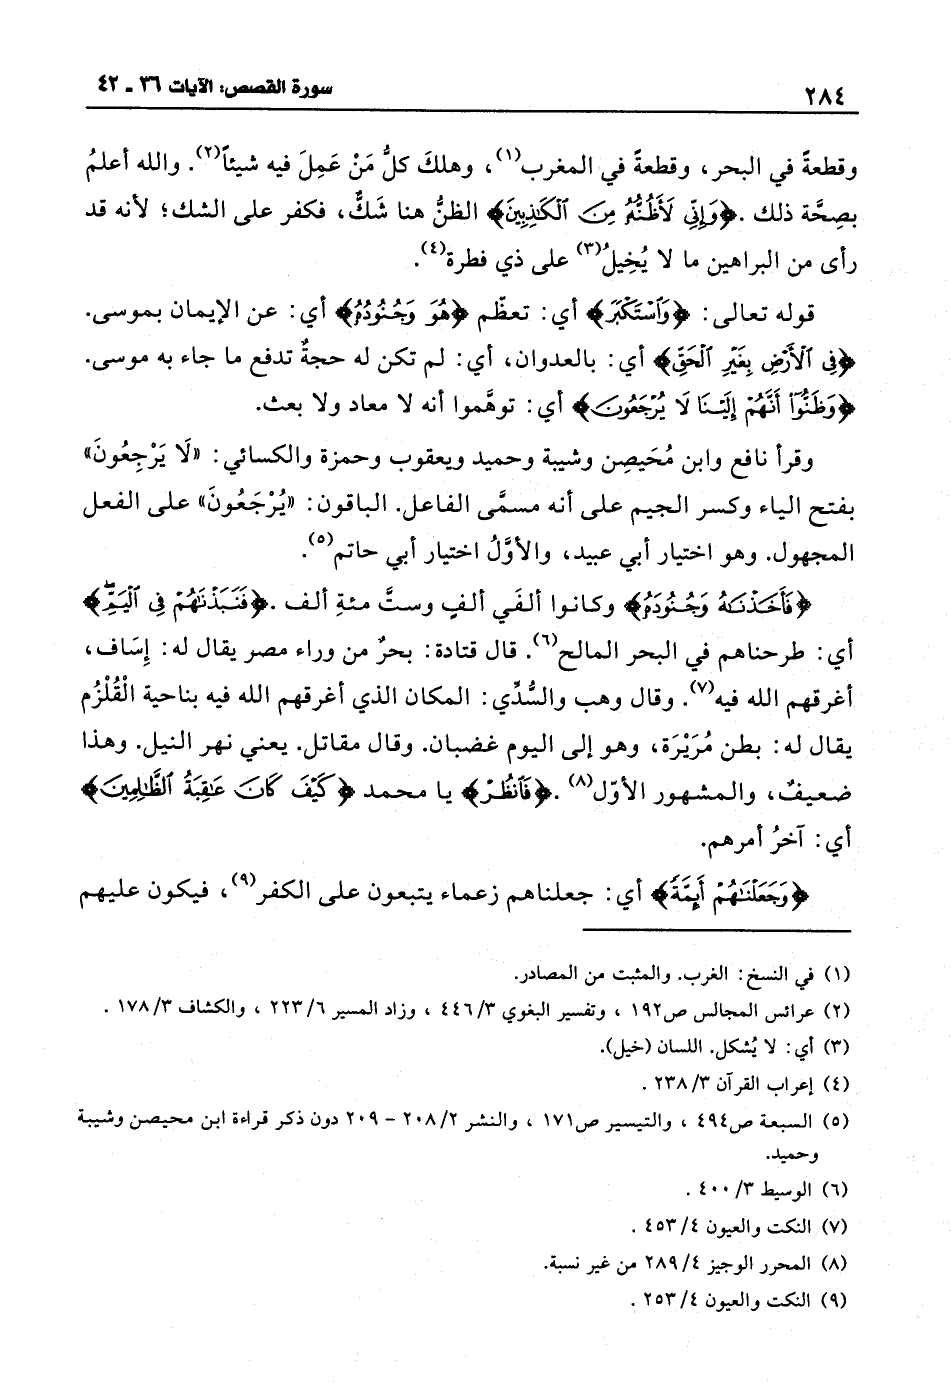 ٢٨٤
سورة القصص: الآيات ٣٦ ـ ٤٢
وقطعةً في البحر، وقطعةً في المغرب(١)، وهلكَ كلُّ مَنْ عَمِلَ فيه شيئاً(٢). والله أعلمُ
بصِحَّة ذلك. ﴿وَإِنِّي لَأَظُنُّهُ مِنَ ٱلْكَٰذِبِينَ﴾ الظنُّ هنا شَكٌّ، فكفر على الشك؛ لأنه قد
رأى من البراهين ما لا يُخِيلُ(٣) على ذي فطرة(٤).
قوله تعالى: ﴿وَٱسْتَكْبَرَ﴾ أي: تعظّم ﴿هُوَ وَجُنُودُهُ﴾ أي: عن الإيمان بموسى.
﴿فِي ٱلْأَرْضِ بِغَيْرِ ٱلْحَقِّ﴾ أي: بالعدوان، أي: لم تكن له حجةٌ تدفع ما جاء به موسى.
﴿وَظَنُّوٓا۟ أَنَّهُمْ إِلَيْنَا لَا يُرْجَعُونَ﴾ أي: توهَّموا أنه لا معاد ولا بعث.
وقرأ نافع وابن مُحَيصِن وشيبة وحميد ويعقوب وحمزة والكسائي: «لَا يَرْجِعُونَ»
بفتح الياء وكسر الجيم على أنه مسمَّى الفاعل. الباقون: «يُرْجَعُونَ» على الفعل
المجهول. وهو اختيار أبي عبيد، والأوَّلُ اختيار أبي حاتم(٥).
﴿فَأَخَذْنَٰهُ وَجُنُودَهُ﴾ وكانوا ألفَي ألفٍ وستَّ مئةِ ألف. ﴿فَنَبَذْنَٰهُمْ فِي ٱلْيَمِّ﴾
أي: طرحناهم في البحر المالح(٦). قال قتادة: بحرٌ من وراء مصر يقال له: إِسَاف،
أغرقهم الله فيه(٧). وقال وهب والسُّدِّي: المكان الذي أغرقهم الله فيه بناحية الْقُلْزُم
يقال له: بطن مُرَيْرَة، وهو إلى اليوم غضبان. وقال مقاتل. يعني نهر النيل. وهذا
ضعيفٌ، والمشهور الأوّل(٨). ﴿فَٱنظُرْ﴾ يا محمد ﴿كَيْفَ كَانَ عَٰقِبَةُ ٱلظَّٰلِمِينَ﴾
أي: آخرُ أمرهم.
﴿وَجَعَلْنَٰهُمْ أَئِمَّةً﴾ أي: جعلناهم زعماء يتبعون على الكفر(٩)، فيكون عليهم
(١) في النسخ: الغرب. والمثبت من المصادر.
(٢) عرائس المجالس ص١٩٢ ، وتفسير البغوي ٣/ ٤٤٦ ، وزاد المسير ٦/ ٢٢٣ ، والكشاف ٣/ ١٧٨ .
(٣) أي: لا يُشكل. اللسان (خيل).
(٤) إعراب القرآن ٣/ ٢٣٨ .
(٥) السبعة ص٤٩٤ ، والتيسير ص١٧١ ، والنشر ٢/ ٢٠٨ - ٢٠٩ دون ذكر قراءة ابن محيصن وشيبة
وحميد.
(٦) الوسيط ٣/ ٤٠٠ .
(٧) النكت والعيون ٤/ ٤٥٣ .
(٨) المحرر الوجيز ٤/ ٢٨٩ من غير نسبة.
(٩) النكت والعيون ٤/ ٢٥٣ .